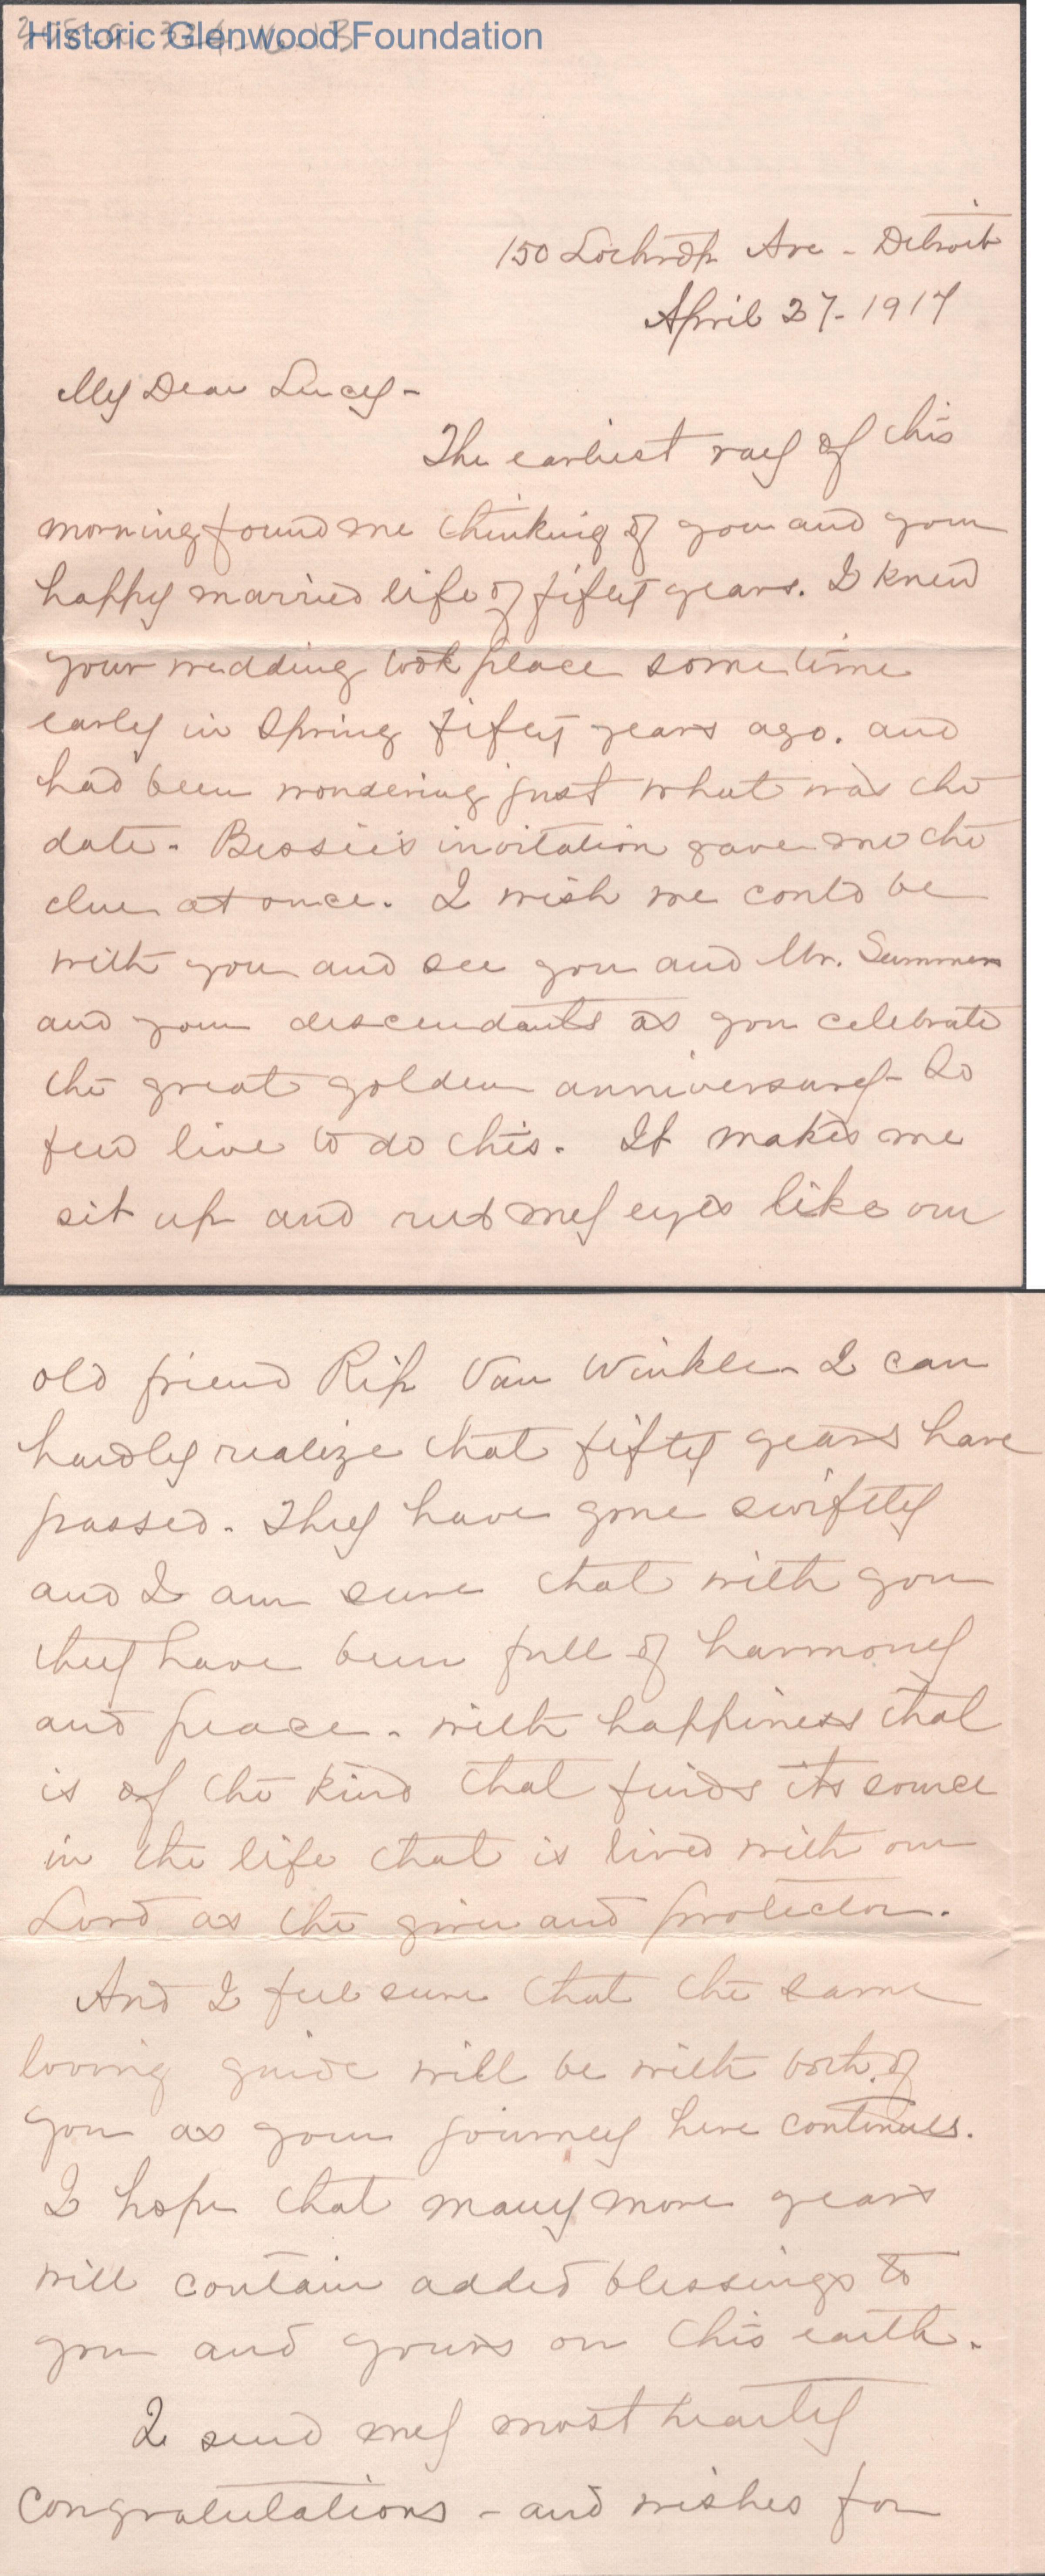 Historic Glenwood Foundation
150 Lothrop Ave - Detroit
April 27 - 1917
My Dear Lucy -
The earliest ray of this
morning found me thinking of you and your
happy married life of fifty years. I knew
your wedding took place sometime
early in Spring fifty years ago. and
had been wondering just what was the
date - Bessie's invitation gave me the
clue at once. I wish we could be
with you and see you and Mr. Summers
and your descendants as you celebrate
the great golden anniversary - So
few live to do this. It makes me
sit up and rub my eyes like our
old friend Rip Van Winkle - I can
hardly realize that fifty years have
passed. They have gone swiftly
and I am sure that with you
they have been full of harmony
and peace - with happiness that
is of the kind that finds its source
in the life that is lived with our
Lord as the giver and protector.
And I feel sure that the same
loving guide will be with both of
you as your journey here continues.
I hope that many more years
will contain added blessings to
you and yours on this earth.
I send my most hearty
congratulations - and wishes for